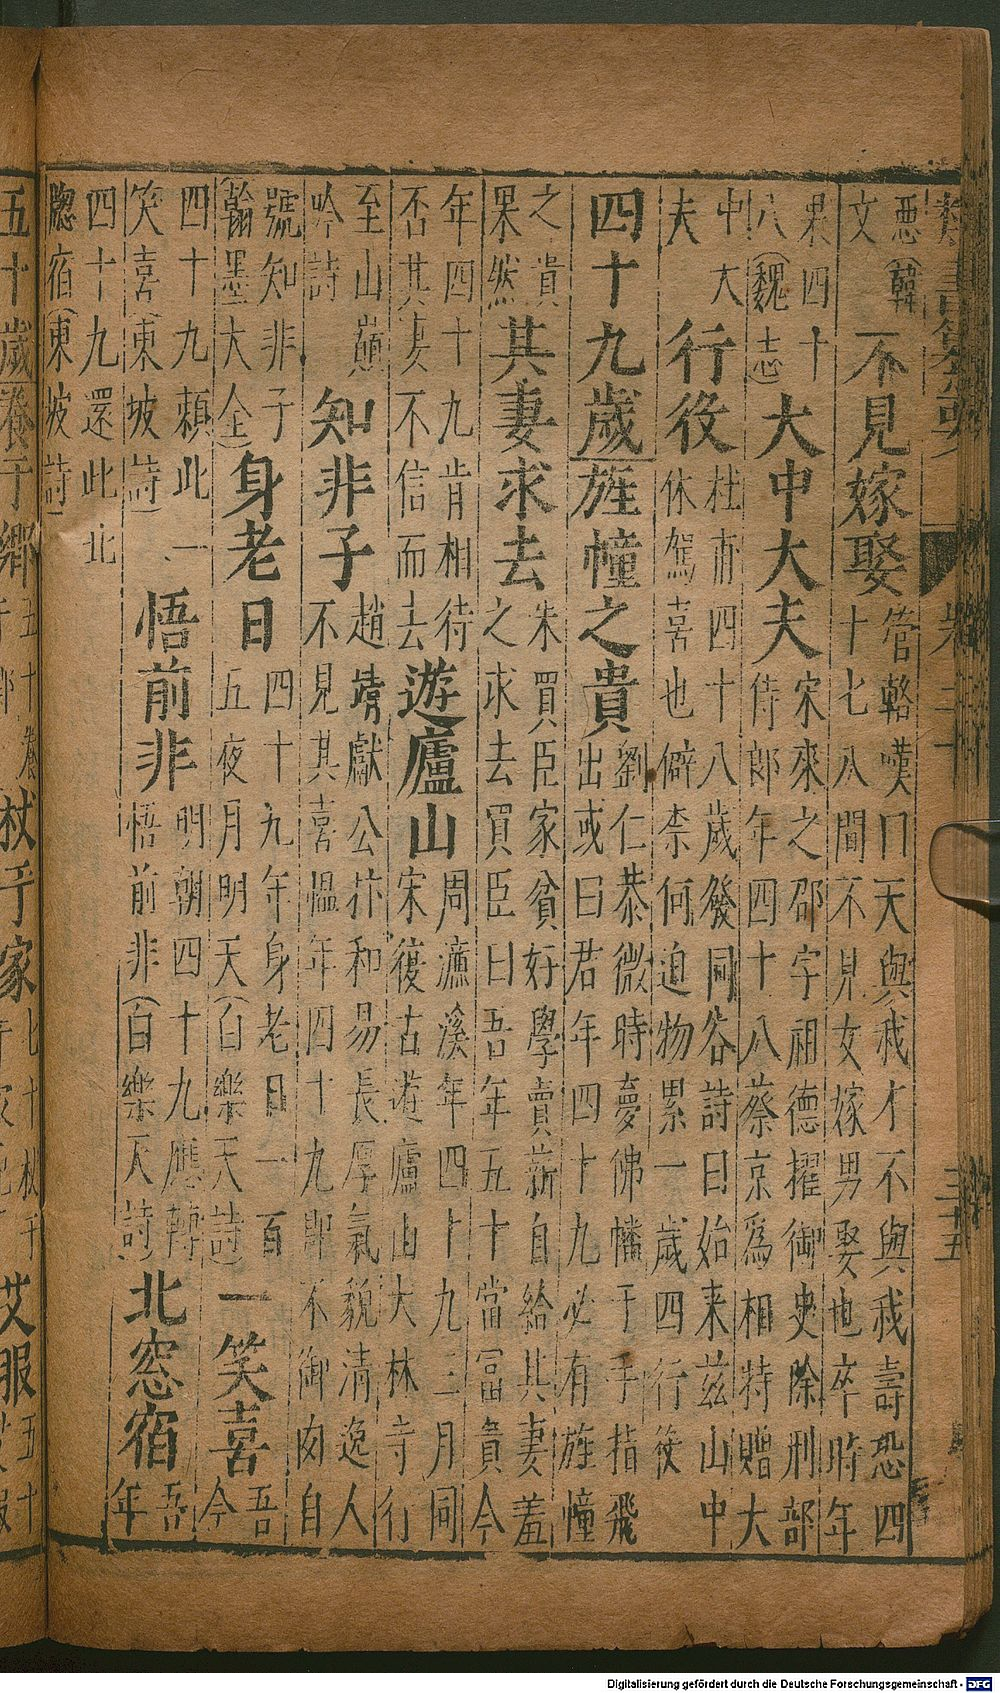 惡(韓
文
不見嫁娶
管輅嘆曰天與我才不與我壽恐四
十七八間不見女嫁男娶也卒時年
果四十
八(魏志)
大中大夫
宋來之邵字祖德擢御史除刑部
侍郎年四十八蔡京爲相特贈大
中大
夫
行役
杜甫四十八歲發同谷詩曰始来茲山中
休駕喜也僻柰何迫物累一歲四行役
四十九歲
旌幢之貴
劉仁恭微時夢佛幡于手指飛
出或曰君年四十九必有旌幢
之貴
果然
其妻求去
朱買臣家貧好學賣薪自給其妻羞
之求去買臣曰吾年五十當冨貴今
年四十九肯相待
否其妻不信而去
遊廬山
周濂溪年四十九三月同
宋復古遊廬山大林寺行
至山巔
吟詩
知非子
趙靖獻公抃和易長厚氣貌清逸人
不見其喜慍年四十九即不御肉自
號知非子
(翰墨大全)
身老日
四十九年身老日一百
五夜月明天(白樂天詩)
一笑喜
吾
今
四十九頼此一
笑喜(東坡詩)
悟前非
明朝四十九應轉
悟前非(白樂天詩)
北窓宿
吾
年
四十九還此北
牎宿(東坡詩)
五十歲
養于鄉
五十養
杖于家
艾服
五十
Digitalisierung gefördert durch die Deutsche Forschungsgemeinschaft - DFG